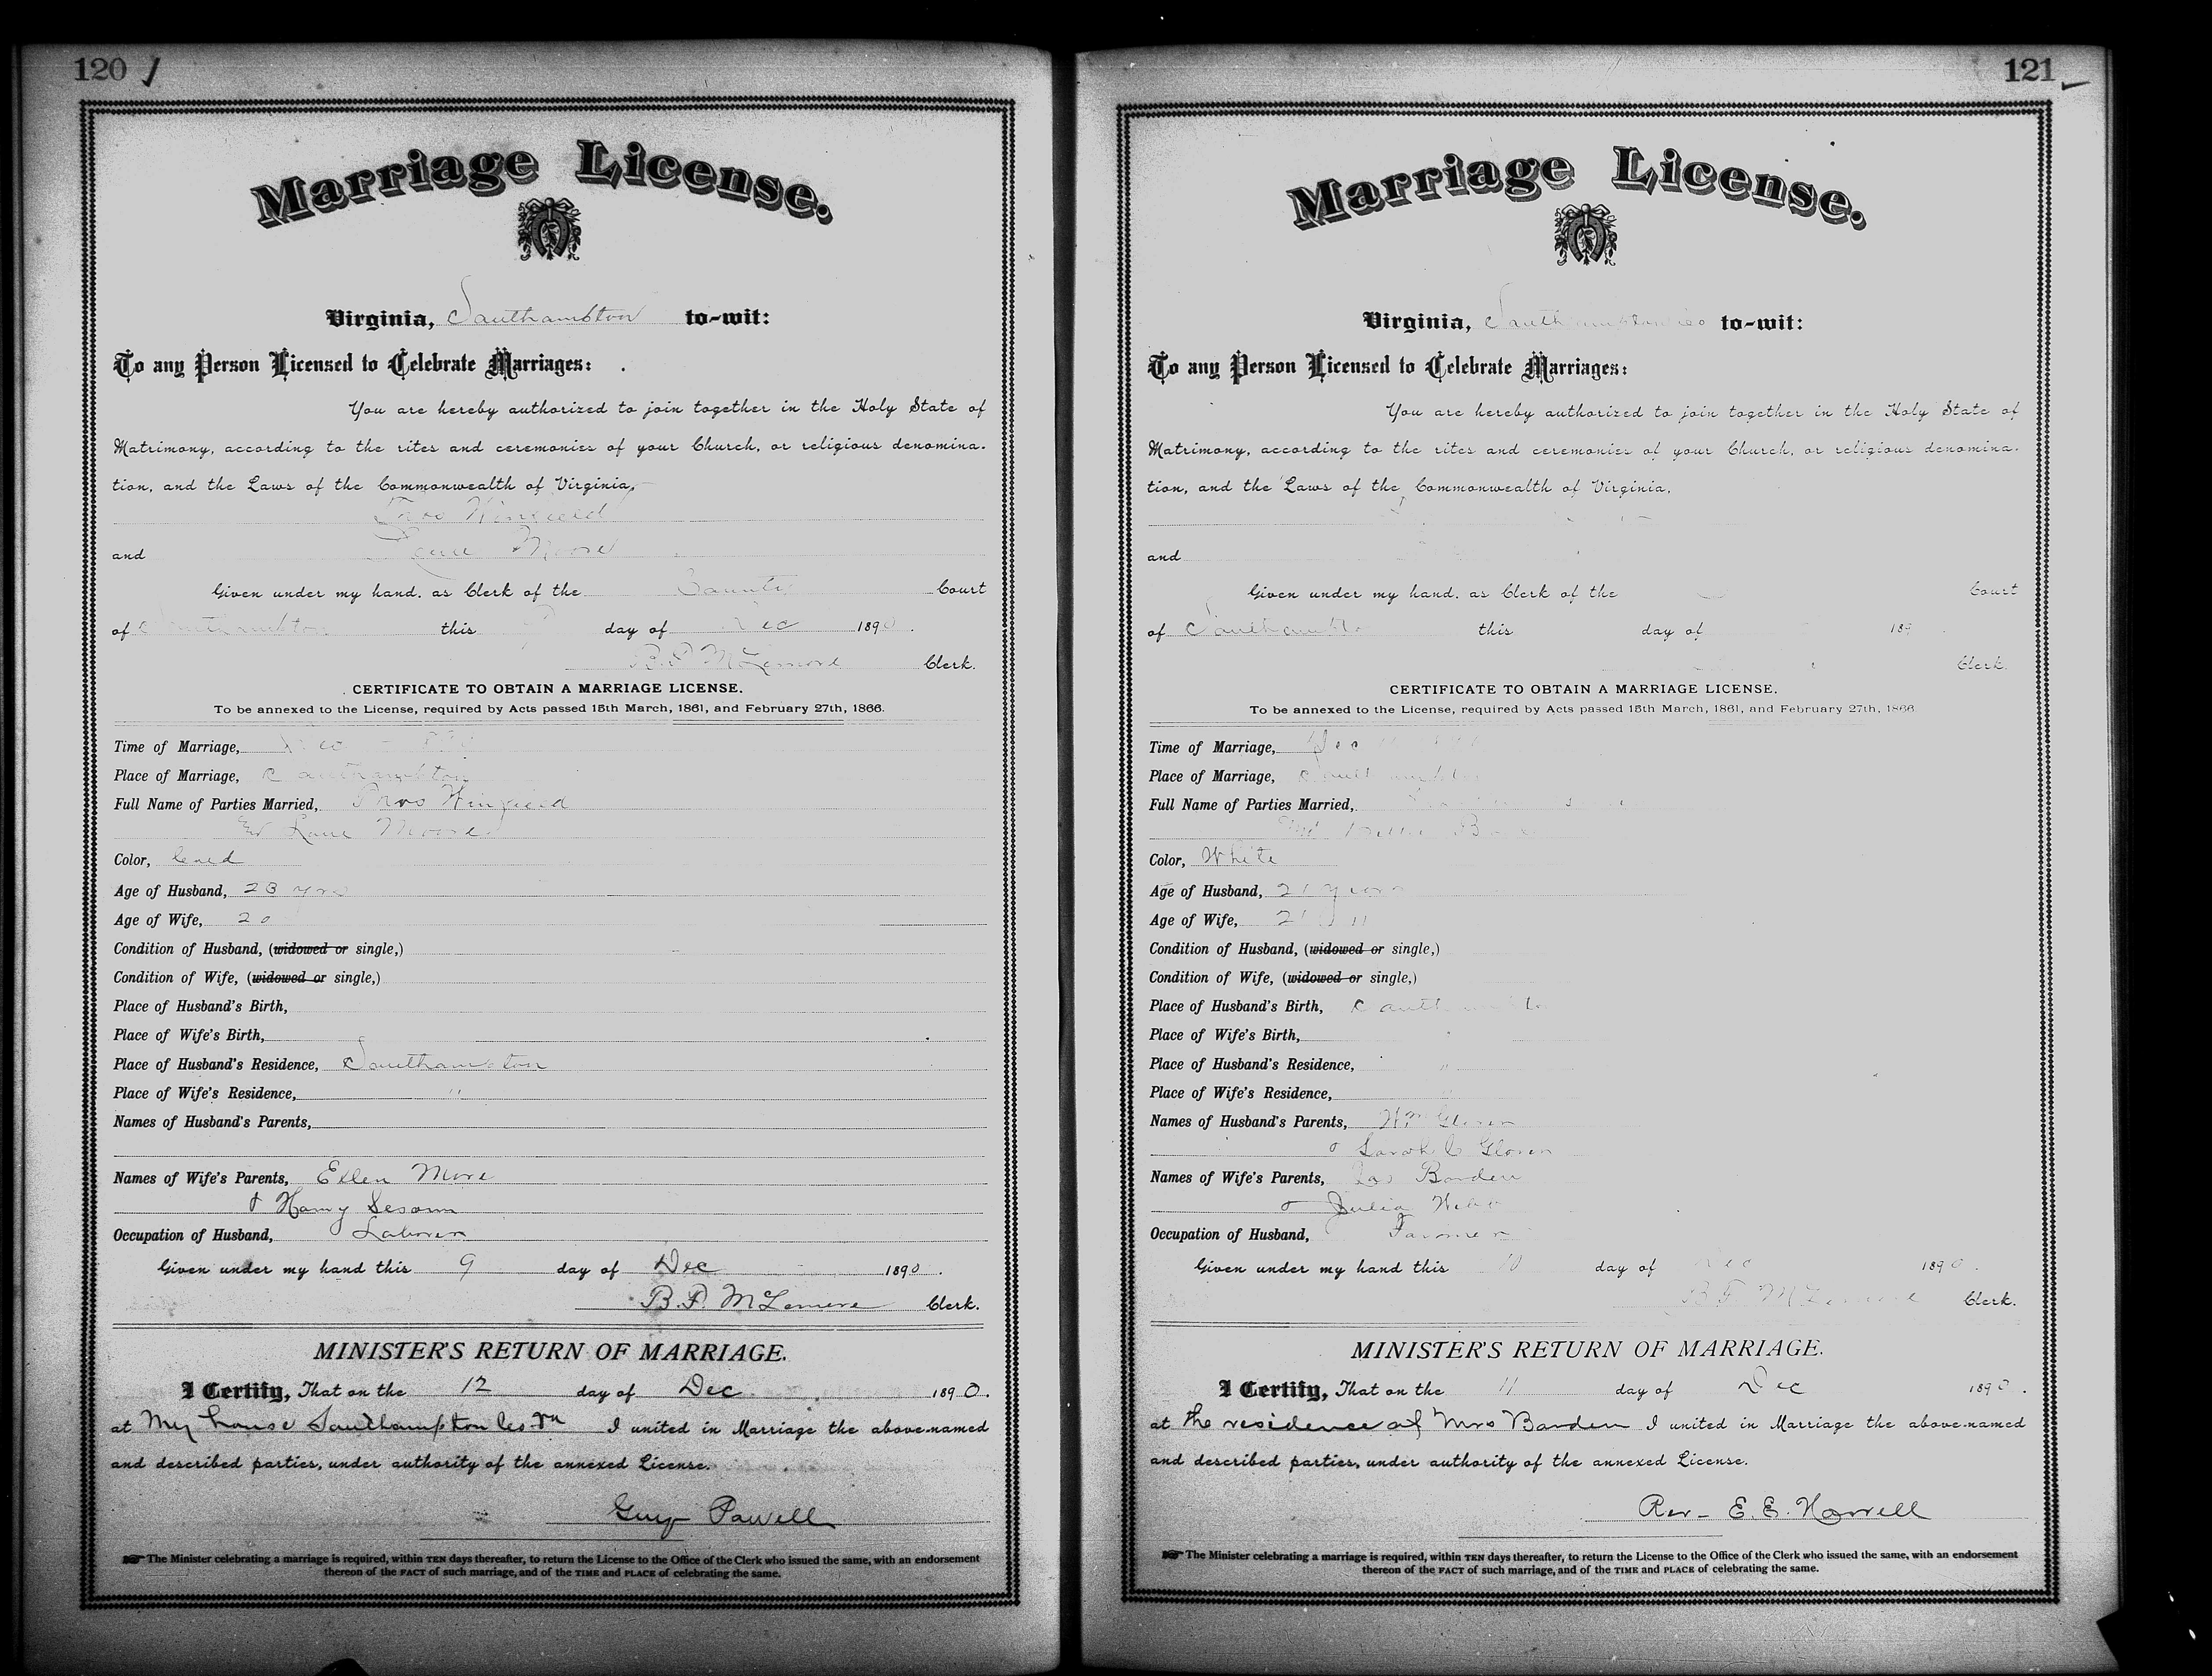 120
Marriage License.
Virginia, Southampton to-wit:
To any Person Licensed to Celebrate Marriages:
You are hereby authorized to join together in the Holy State of
Matrimony, according to the rites and ceremonies of your Church, or religious denomina-
tion, and the Laws of the Commonwealth of Virginia,
Winfield
and Moore
Given under my hand, as Clerk of the County Court
of Southampton this day of Dec 1890.
B. F. McLemore Clerk.
CERTIFICATE TO OBTAIN A MARRIAGE LICENSE.
To be annexed to the License, required by Acts passed 15th March, 1861, and February 27th, 1866.
Time of Marriage, Dec
Place of Marriage, Southampton
Full Name of Parties Married, Winfield
Moore
Color, Cold
Age of Husband, 23 yrs
Age of Wife, 20
Condition of Husband, (widowed or single,)
Condition of Wife, (widowed or single,)
Place of Husband's Birth,
Place of Wife's Birth,
Place of Husband's Residence, Southampton
Place of Wife's Residence, "
Names of Husband's Parents,
Names of Wife's Parents, Ellen More
& Harry Sesom
Occupation of Husband, Laborer
Given under my hand this 9 day of Dec 1890.
B. F. McLemore Clerk.
MINISTER'S RETURN OF MARRIAGE.
I Certify, That on the 12 day of Dec 1890.
at My house Southampton Co. Va I united in Marriage the above-named
and described parties, under authority of the annexed License.
Guy Powell
The Minister celebrating a marriage is required, within TEN days thereafter, to return the License to the Office of the Clerk who issued the same, with an endorsement
thereon of the FACT of such marriage, and of the TIME and PLACE of celebrating the same.
121
Marriage License.
Virginia, Southampton Co to-wit:
To any Person Licensed to Celebrate Marriages:
You are hereby authorized to join together in the Holy State of
Matrimony, according to the rites and ceremonies of your Church, or religious denomina-
tion, and the Laws of the Commonwealth of Virginia,
and
Given under my hand, as Clerk of the Court
of Southampton this day of 189
Clerk.
CERTIFICATE TO OBTAIN A MARRIAGE LICENSE.
To be annexed to the License, required by Acts passed 15th March, 1861, and February 27th, 1866.
Time of Marriage, Dec
Place of Marriage, Southampton
Full Name of Parties Married,
Color, White
Age of Husband, 21 years
Age of Wife, 21 "
Condition of Husband, (widowed or single,)
Condition of Wife, (widowed or single,)
Place of Husband's Birth, Southampton
Place of Wife's Birth,
Place of Husband's Residence, "
Place of Wife's Residence, "
Names of Husband's Parents, Wm Glover
& Sarah C Glover
Names of Wife's Parents, Jas Barden
& Julia
Occupation of Husband, Farmer
Given under my hand this 10 day of Dec 1890.
B. F. McLemore Clerk.
MINISTER'S RETURN OF MARRIAGE.
I Certify, That on the 11 day of Dec 1890.
at the residence of Mrs Barden I united in Marriage the above-named
and described parties, under authority of the annexed License.
Rev- E. E. Harrell
The Minister celebrating a marriage is required, within TEN days thereafter, to return the License to the Office of the Clerk who issued the same, with an endorsement
thereon of the FACT of such marriage, and of the TIME and PLACE of celebrating the same.